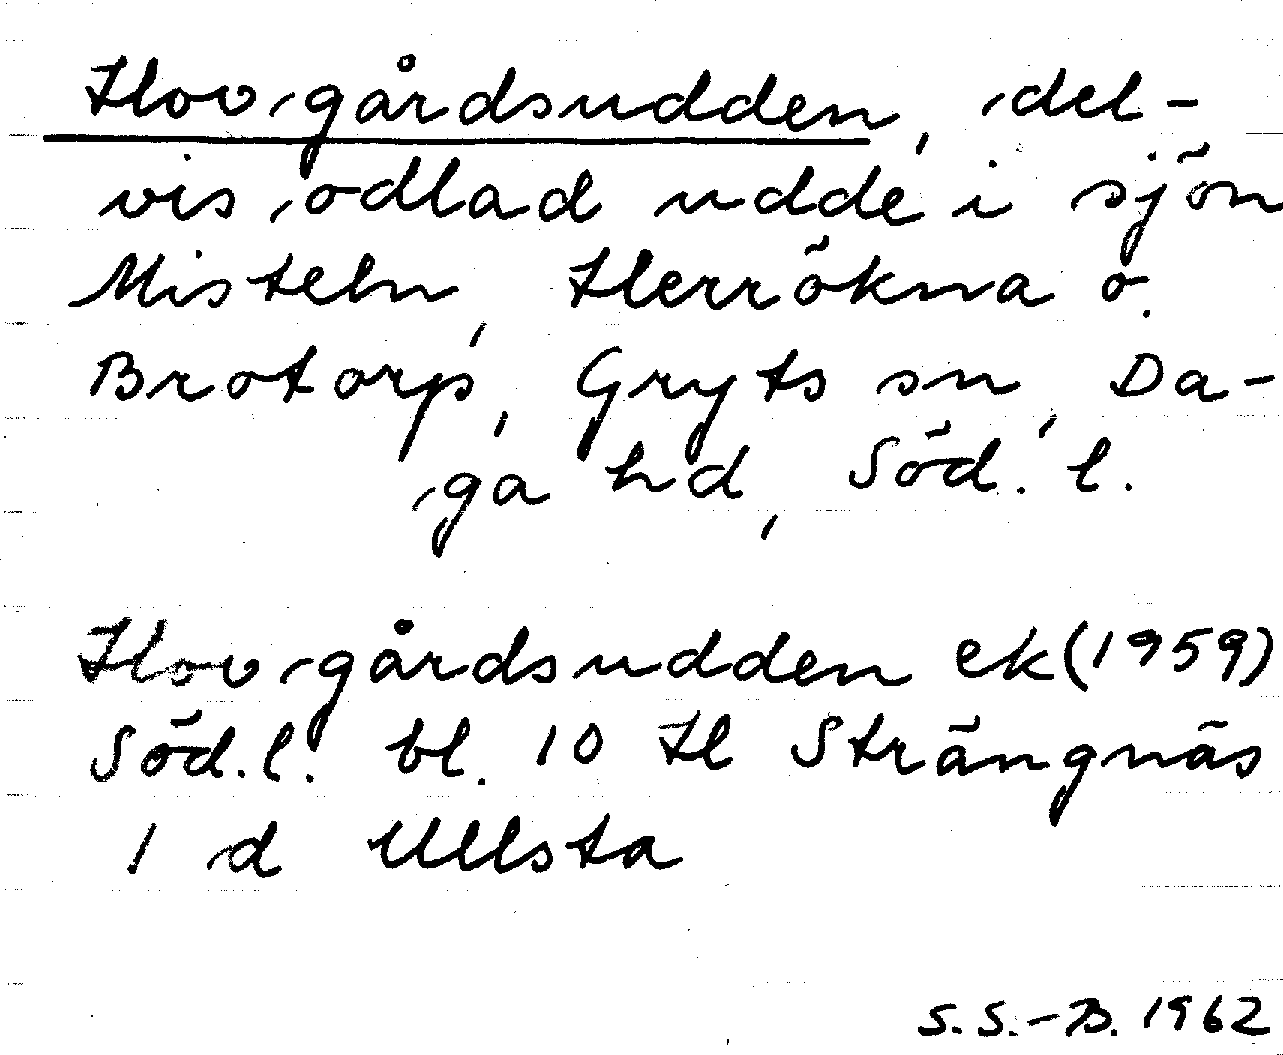 Hovgårdsudden, del-
vis odlad udde i sjön
Misteln, Herrökna o.
Brotorp, Gryts sn, Da-
ga hd, Söd. l.
Hovgårdsudden ek (1959)
Söd. l. bl. 10 H Strängnäs
1 d Ullsta
S. S.-B. 1962